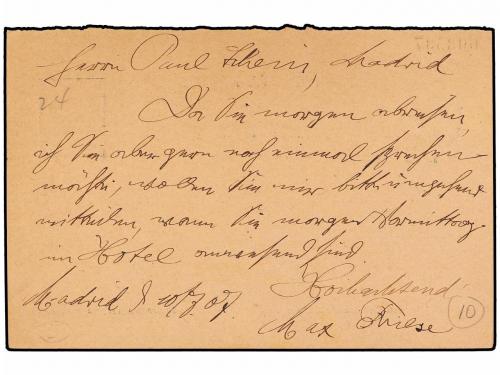 Herrn Paul Schein, Madrid
24
Da Sie morgen abreisen,
ich Sie aber gern noch einmal sprechen
möchte, wollen Sie mir bitte umgehend
mitteilen, wann Sie morgen Vormittag
im Hotel anwesend sind.
Hochachtend
Madrid d 10/7 07.
Max Thiese
10